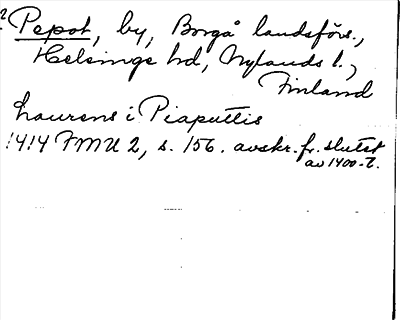 ? Pepot, by, Borgå landsförs.,
Helsinge hd, Nylands l.,
Finland
Laurens i Piaputtis
1414 FMU 2, s. 156. avskr. fr. slutet
av 1400-t.